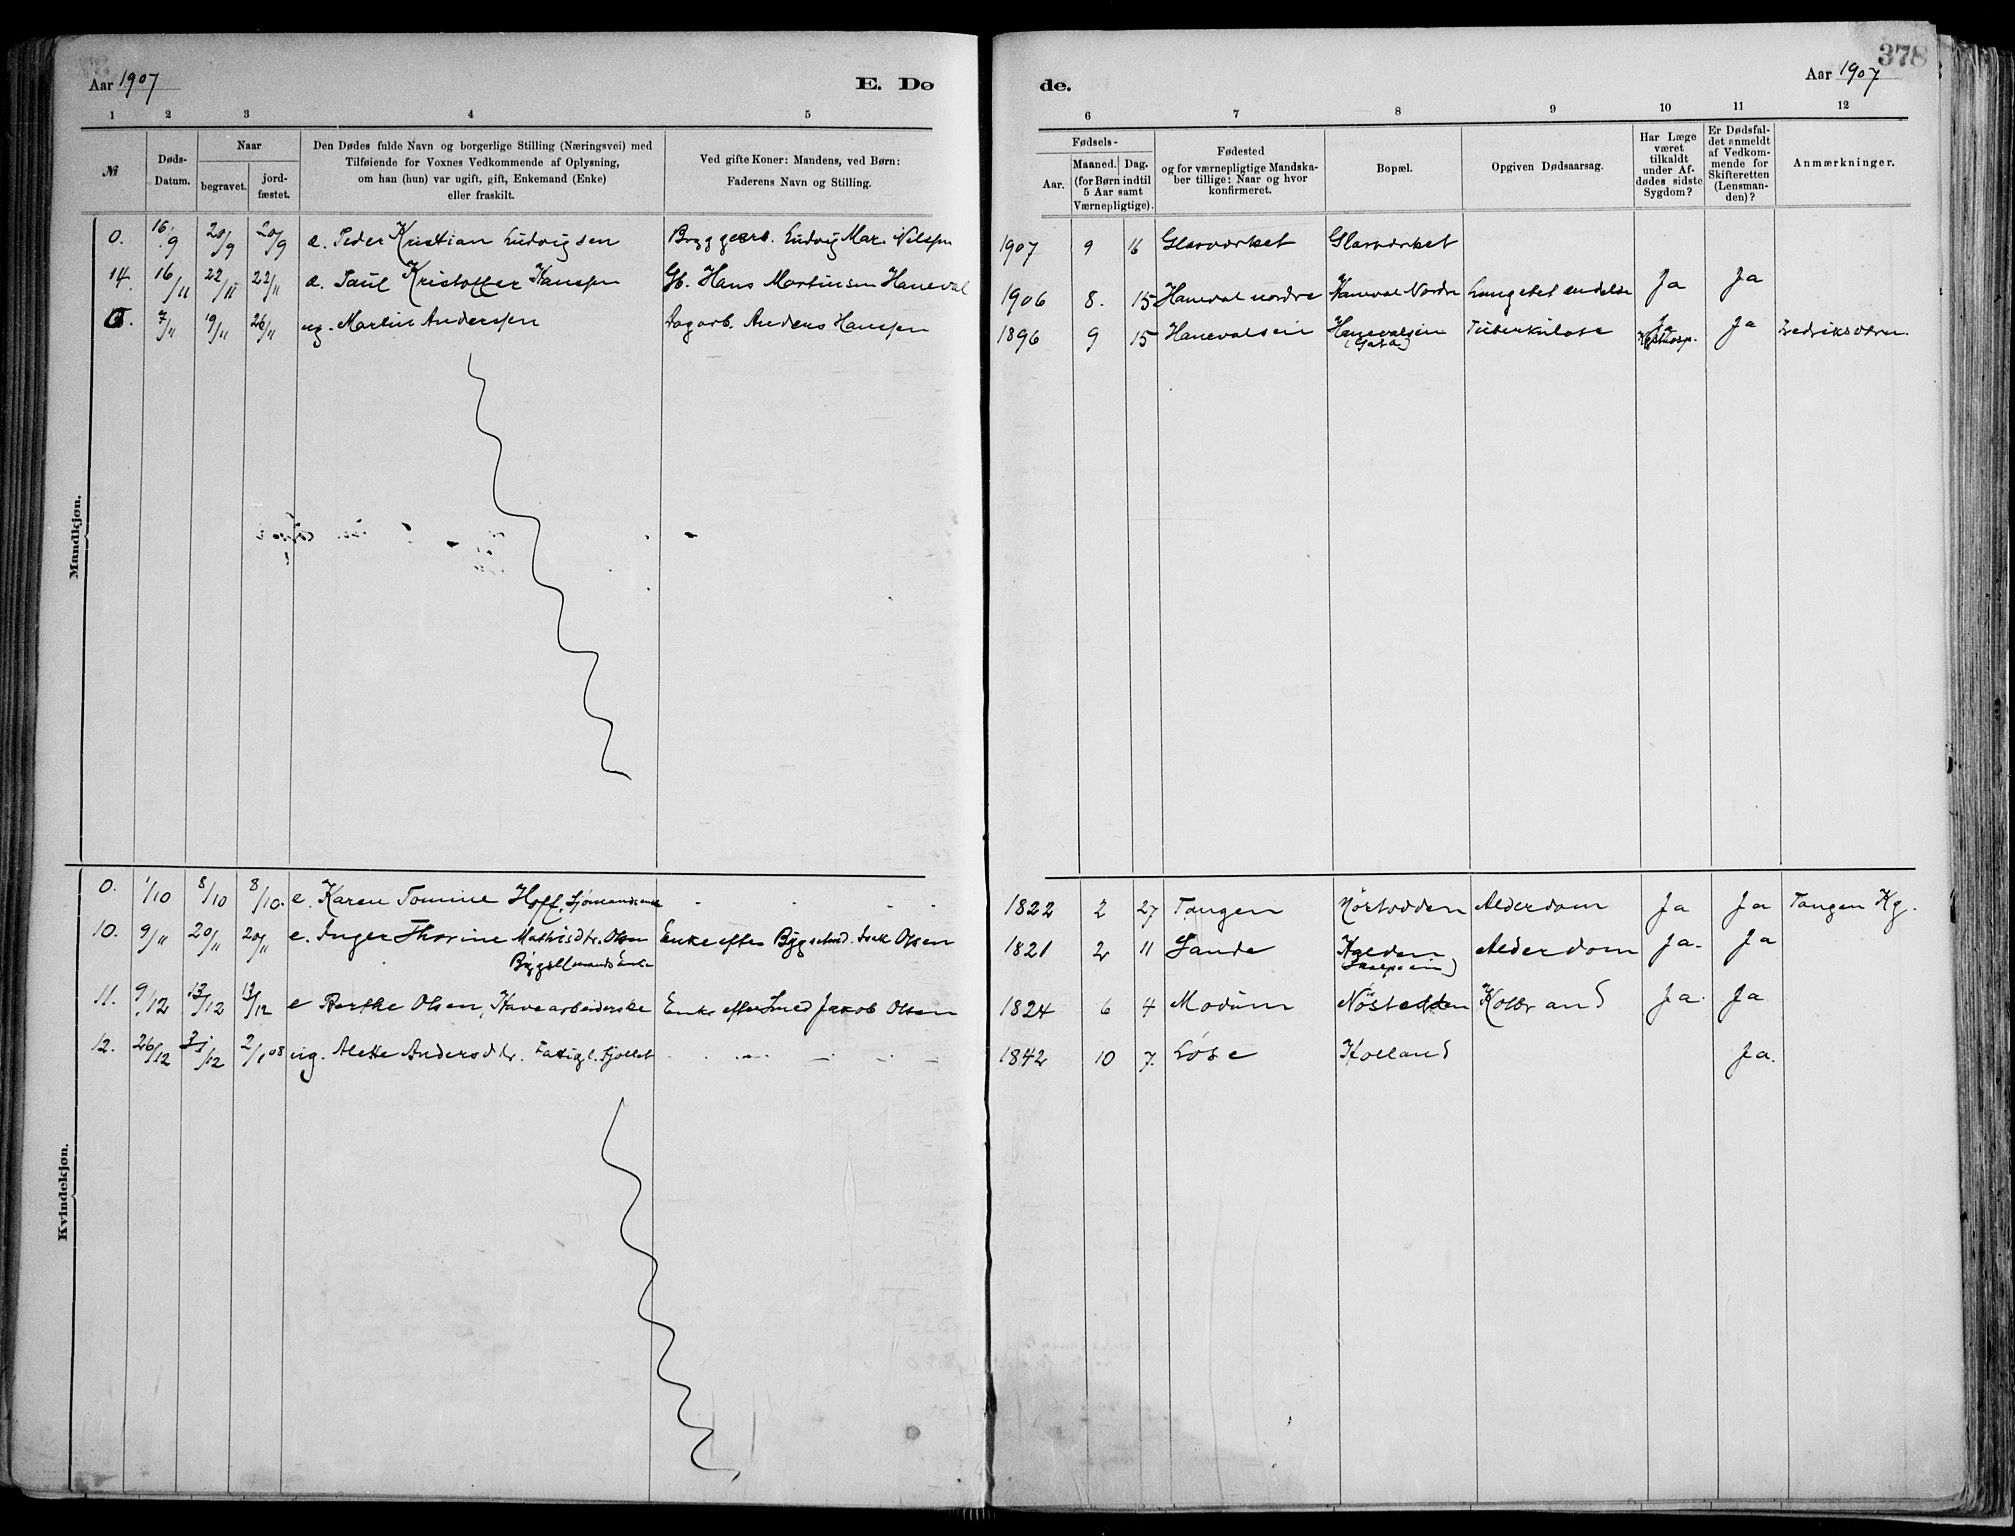 378
Aar 1907 E. Dø de. Aar 1907
1 2 3 4 5 6 7 8 9 10 11 12
№
Døds-Datum.
Naar
begravet.
jord-fæstet.
Den Dødes fulde Navn og borgerlige Stilling (Næringsvei) med
Tilføiende for Voxnes Vedkommende af Oplysning,
om han (hun) var ugift, gift, Enkemand (Enke)
eller fraskilt.
Ved gifte Koner: Mandens, ved Børn:
Faderens Navn og Stilling.
Fødsels-
Aar.
Maaned. Dag.
(for Børn indtil
5 Aar samt
Værnepligtige).
Fødested
og for værnepligtige Mandska-
ber tillige: Naar og hvor
konfirmeret.
Bopæl.
Opgiven Dødsaarsag.
Har Læge
været
tilkaldt
under Af-
dødes sidste
Sygdom?
Er Dødsfal-
det anmeldt
af Vedkom-
mende for
Skifteretten
(Lensman-
den)?
Anmærkninger.
Mandkjøn.
0. 16/9 20/9 20/9 a. Peder Kristian Ludvigsen Bryggearb. Ludvig Mar. Nilsen 1907 9 16 Glasværket Glasværket
14. 16/11 22/11 22/11 a. Paul Kristoffer Hansen Gb. Hans Martinsen Haneval 1906 8. 15 Haneval nordre Haneval Nordre Lungebetændelse Ja Ja
0. 7/11 19/11 26/11 ug. Martin Andersen Dagarb. Anders Hansen 1896 9 15 Hanevalseie Hanevalseie Tuberkulose Ja Ja Fredriksværn.
Kysthosp.
Kvindekjøn.
0. 1/10 8/10 8/10. e. Karen Tomine Hoff, Sjømandsenke 1822 2 27 Tangen Nøstodden Alderdom Ja Ja Tangen Kg.
10. 9/11 20/11 20/11 e. Inger Thorine Mathisdtr. Olsen Enke efter Bygselmd. Isak Olsen 1821 2 11 Sande Holden Alderdom Ja. Ja
Bygselmands Enke
11. 9/12 13/12 13/12 e Berthe Olsen, Havearbeiderske Enke efter Smed Jakob Olsen 1824 6 4 Modum Nøstodden Kolbrand Ja. Ja
12. 26/12 31/12 2/1 08 ug. Alette Andersdtr. Fattigl. Fjollet 1842 10 7. Løse Holland Ja.